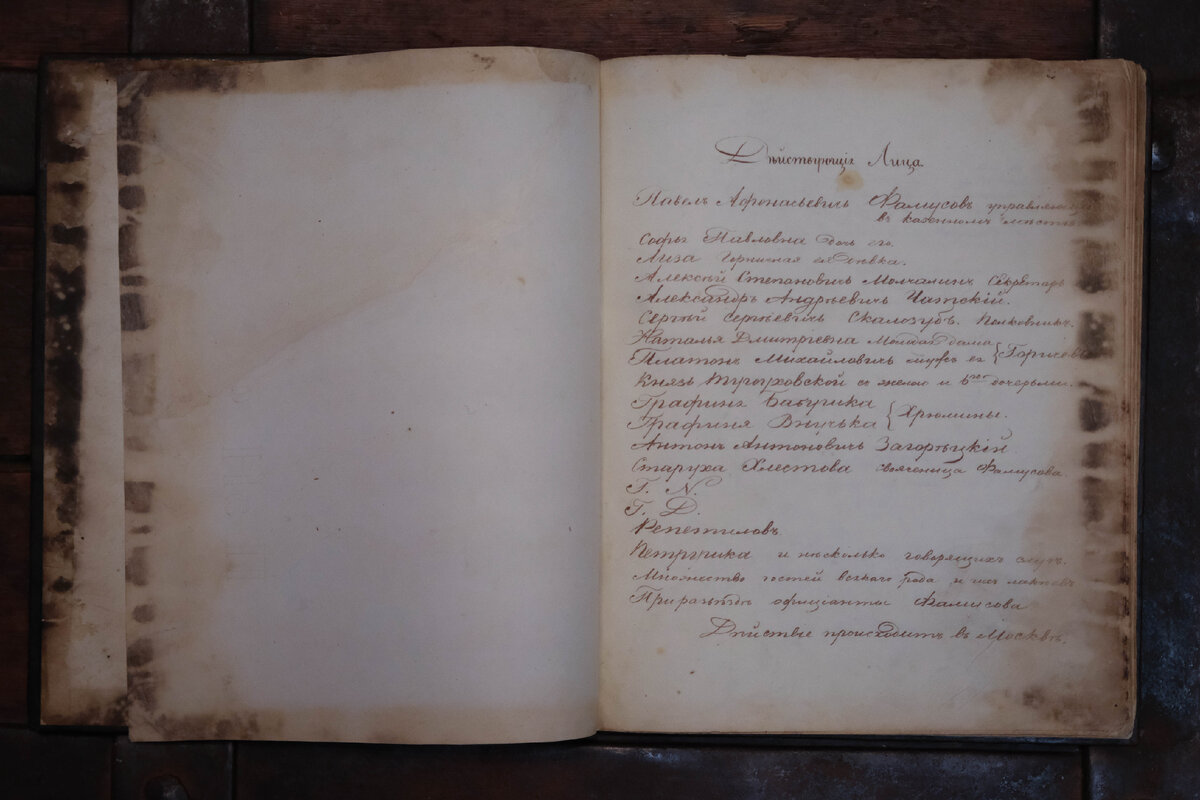 Дѣйствующіе Лица
Павелъ Афонасьевичъ Фамусовъ управляющій
въ казенномъ мѣстѣ
Софья Павловна дочь его.
Лиза Горничная ея дѣвка.
Алексѣй Степановичъ Молчалинъ Секретарь
Александръ Андрѣевичъ Чатскій.
Сергѣй Сергѣевичъ Скалозубъ. Полковникъ.
Наталья Дмитріевна Молодая дама
Платонъ Михайловичъ мужъ ея { Горичевы
Князь Тугоуховской съ женою и 6ю дочерьми.
Графиня Бабушка
Графиня Внучька { Хрюмины.
Антонъ Антоновичъ Загорѣцкій
Старуха Хлестова свояченица Фамусова.
Г. N.
Г. D.
Репетиловъ
Петрушка и нѣсколько говорящихъ слугъ.
Множество гостей всякаго рода и ихъ лакѣевъ
При разъѣздѣ официанты Фамусова
Дѣйствіе происходитъ въ Москвѣ.